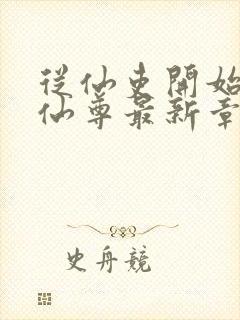 從仙吏開始
仙尊最新章
史舟競